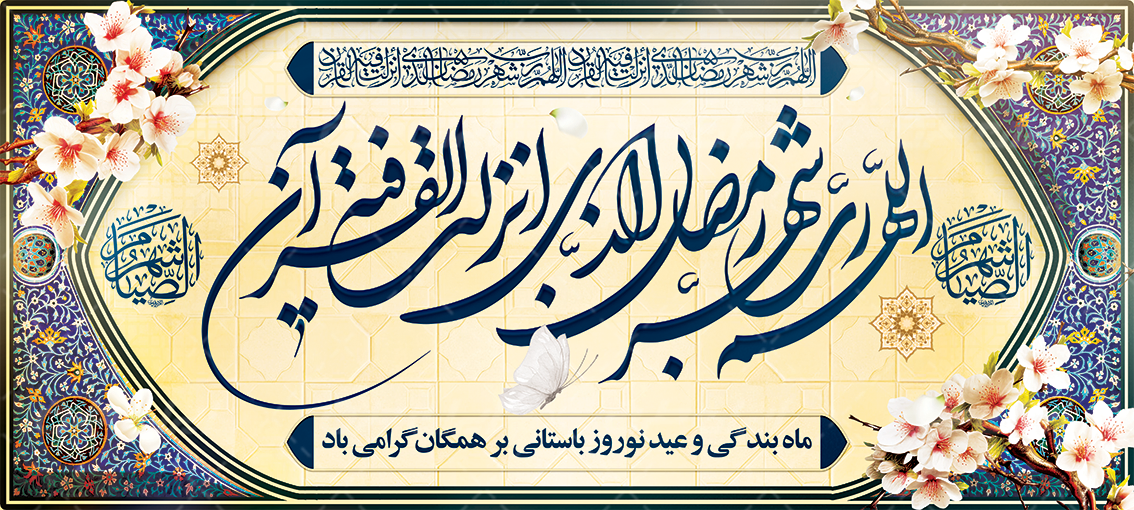 اللهم رب شهر رمضان الذی انزلت فیه القرآن اللهم رب شهر رمضان الذی انزلت فیه القرآن
اللهم رب شهر رمضان الذی انزلت فیه القرآن
شهر الصیام
شهر الصیام
ماه بندگی و عید نوروز باستانی بر همگان گرامی باد